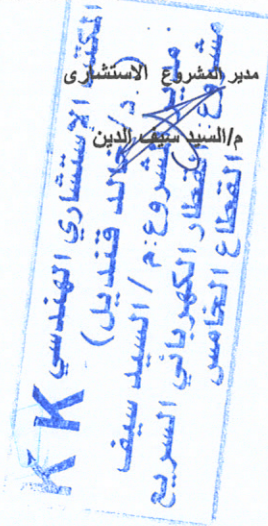 مدير المشروع الاستشارى
م/السيد سيف الدين
K K المكتب الاستشاري الهندسي
(د/ خالد قنديل)
مدير المشروع: م / السيد سيف
مشروع: القطار الكهربائي السريع
القطاع الخامس